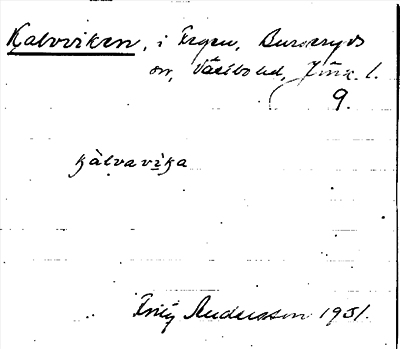 Kalvviken, i Fegen, Burseryds
sn, Västbo hd, Jönk. l.
9.
kàlvavika
Frity Andersson 1931.